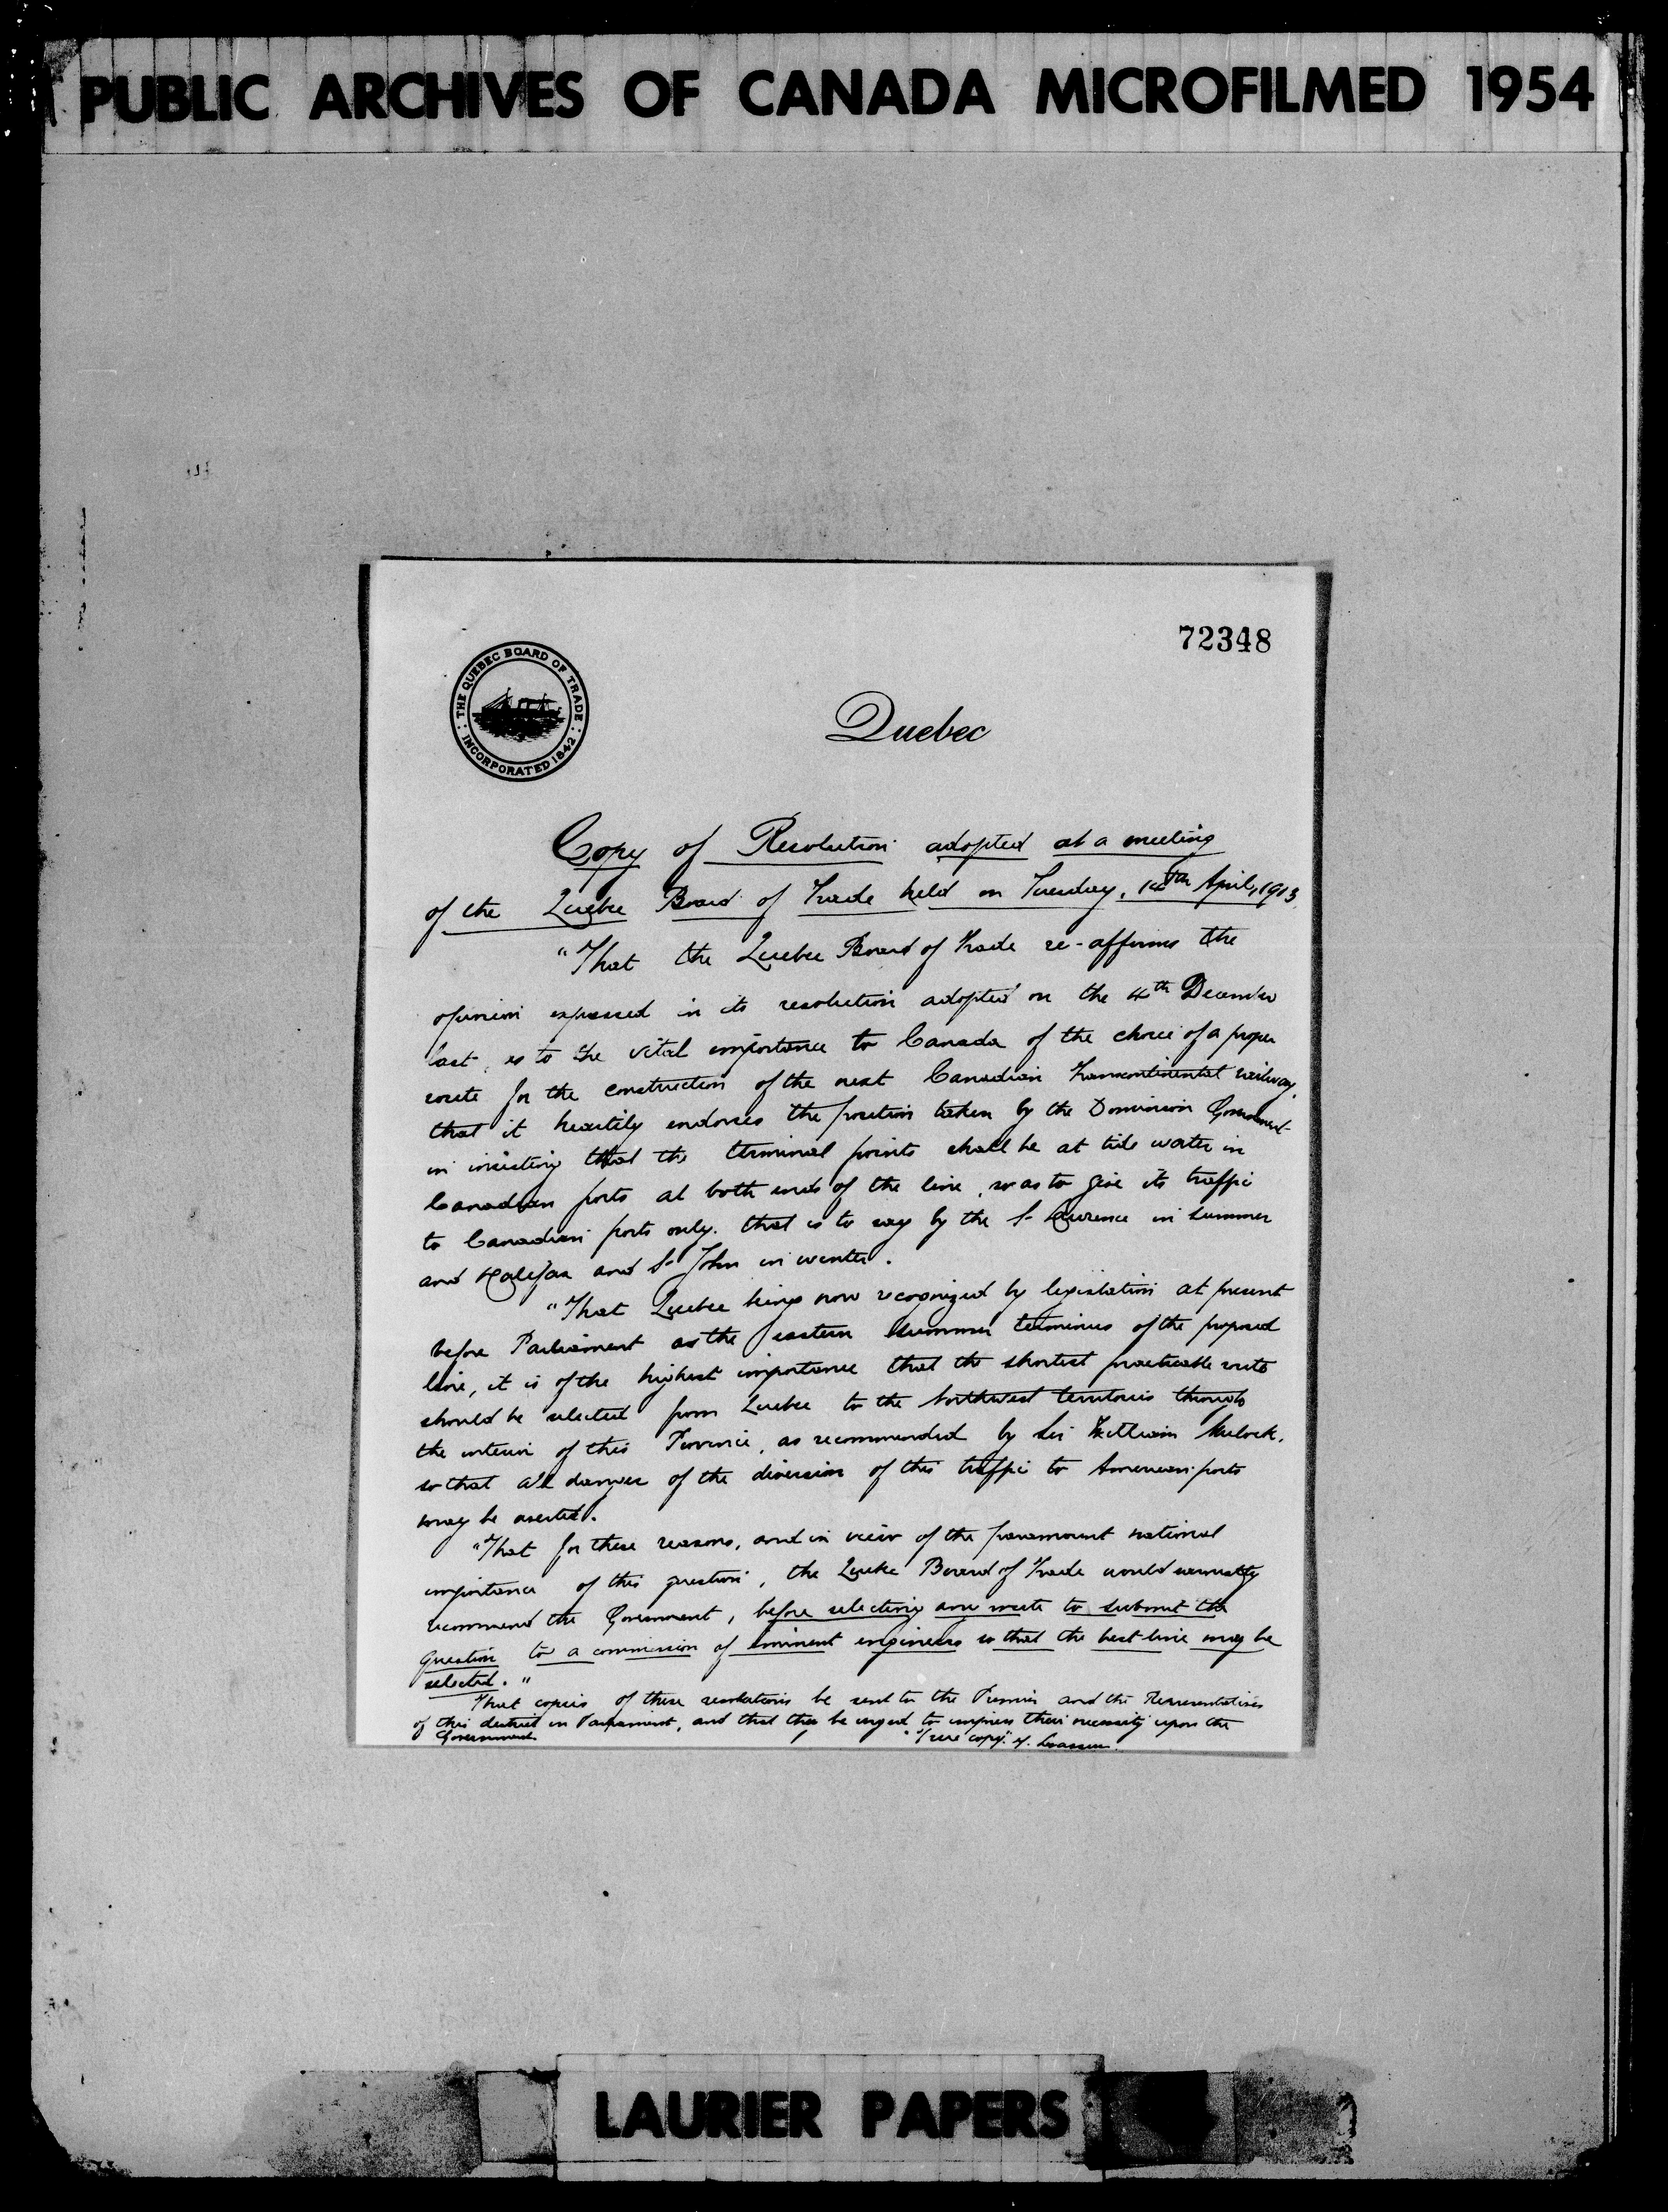 PUBLIC ARCHIVES OF CANADA MICROFILMED 1954
72348
THE QUEBEC BOARD OF TRADE
INCORPORATED 1842
Quebec
Copy of Resolution adopted at a meeting
of the Quebec Board of Trade held on Tuesday, 14th April, 1903
"That the Quebec Board of Trade re-affirms the
opinion expressed in its resolution adopted on the 4th December
last, as to the vital importance to Canada of the choice of a proper
route for the construction of the next Canadian transcontinental railway,
that it heartily endorses the position taken by the Dominion Government
in insisting that the terminal points shall be at tide water in
Canadian ports at both ends of the line, so as to give its traffic
to Canadian ports only. that is to say by the St Lawrence in summer
and Halifax and St John in winter.
"That Quebec being now recognized by legislation at present
before Parliament as the eastern summer terminus of the proposed
line, it is of the highest importance that the shortest practicable route
should be selected from Quebec to the Northwest territories through
the interior of this Province, as recommended by Sir William Mulock,
so that all danger of the diversion of this traffic to American ports
may be averted.
"That for these reasons, and in view of the paramount national
importance of this question, the Quebec Board of Trade would earnestly
recommend the Government, before selecting any route to submit the
question to a commission of eminent engineers so that the best line may be
selected."
That copies of these resolutions be sent to the Premier and the Representatives
of this district in Parliament, and that they be urged to impress their necessity upon the
Government. "True copy"
LAURIER PAPERS